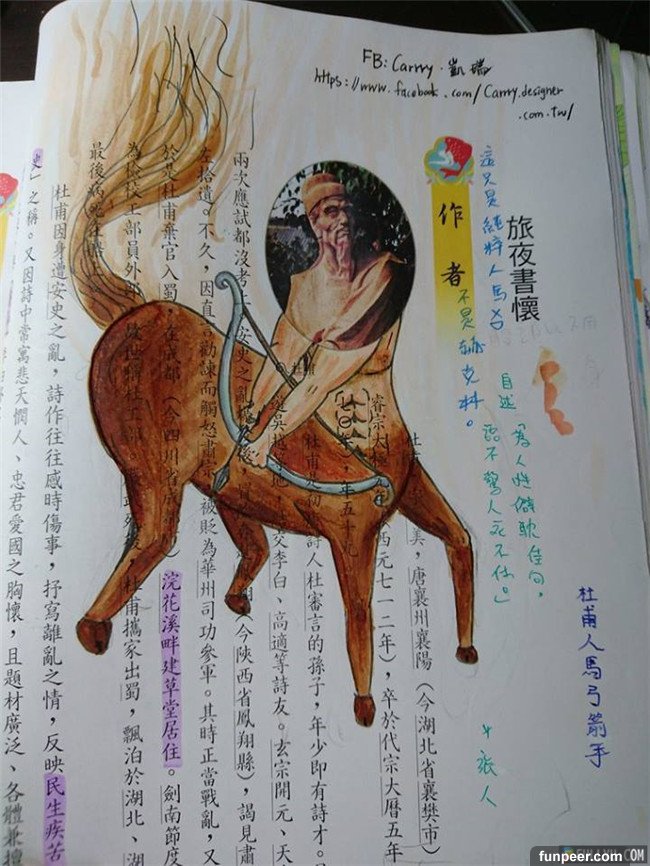 FB: Carrry.凱瑞
https://www.facebook.com/Carrry.designer
.com.tw/
杜甫人馬弓箭手
旅夜書懷
自述「為人性僻耽佳句，
語不驚人死不休。」
作者
這只是純粹人馬
不是 克林。
美，唐襄州襄陽（今湖北省襄樊市）
睿宗大極 西元七一二年），卒於代宗大曆五年
年），年五十九
杜甫是初唐詩人杜審言的孫子，年少即有詩才。
遊吳越等地，結交李白、高適等詩友。玄宗開元、天
兩次應試都沒考上。安史之亂爆發後， （今陝西省鳳翔縣），謁見肅
左拾遺。不久，因直言勸諫而觸怒肅宗，被貶為華州司功參軍。其時正當戰亂，又
於是杜甫棄官入蜀，在成都（今四川省成都市）浣花溪畔建草堂居住。劍南節度
為檢校工部員外郎， 杜甫攜家出蜀，飄泊於湖北、湖
最後病死
杜甫因身遭安史之亂，詩作往往感時傷事，抒寫離亂之情，反映民生疾苦
史」之稱。又因詩中常寓悲天憫人、忠君愛國之胸懷，且題材廣泛、各體兼擅
funpeer.com